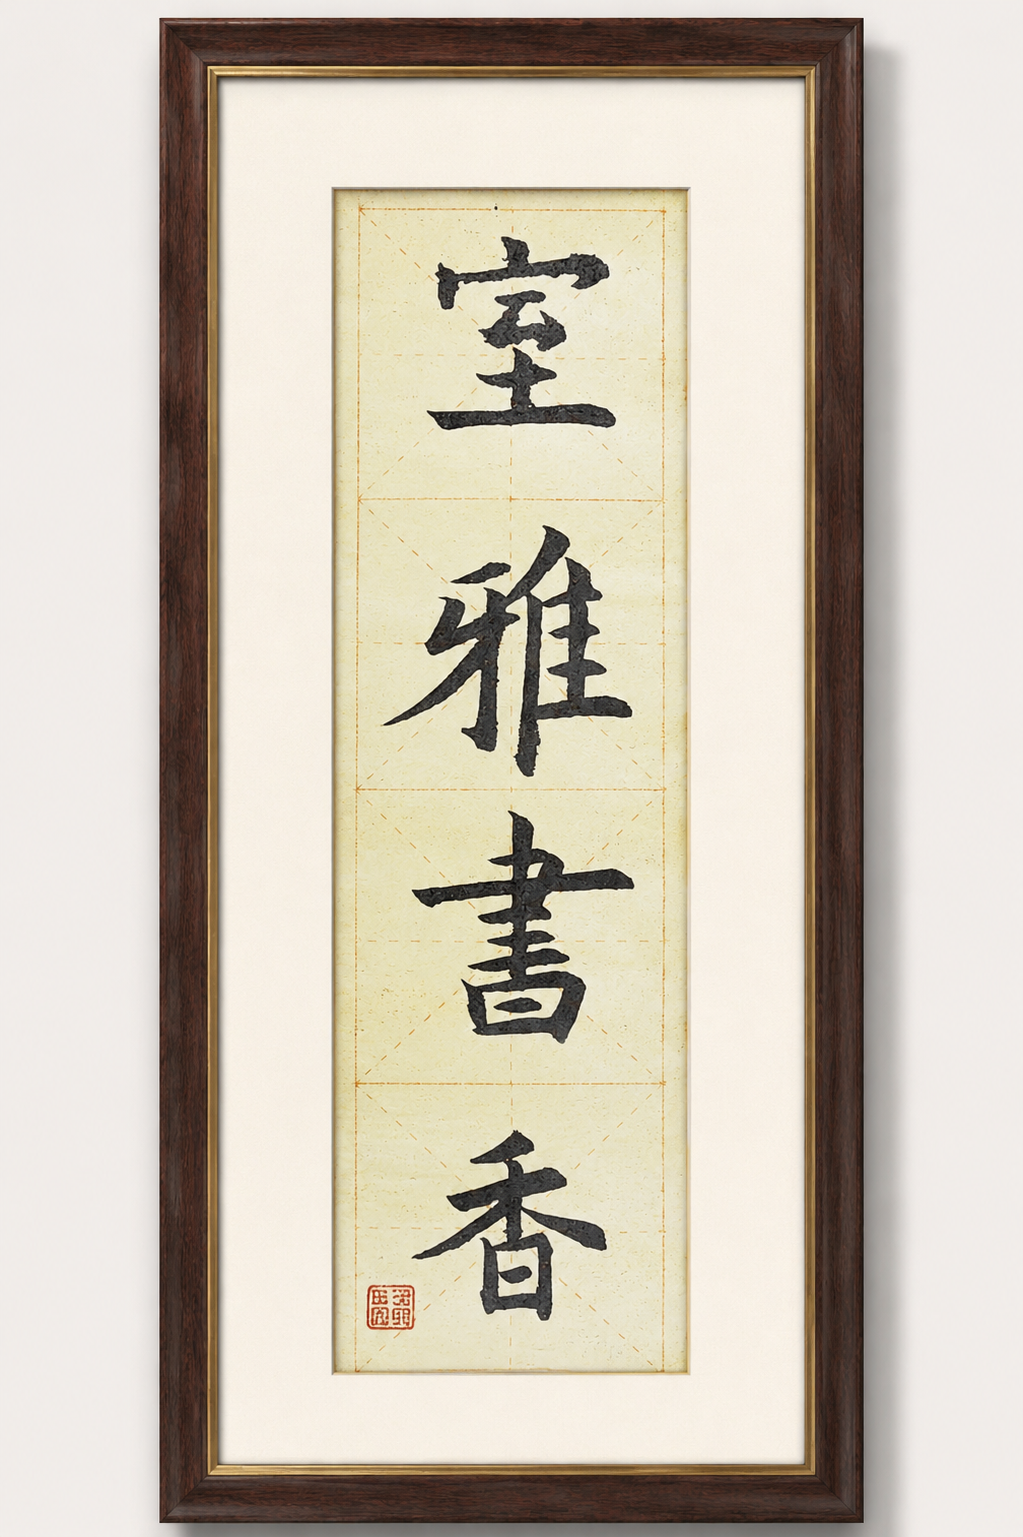 室雅書香